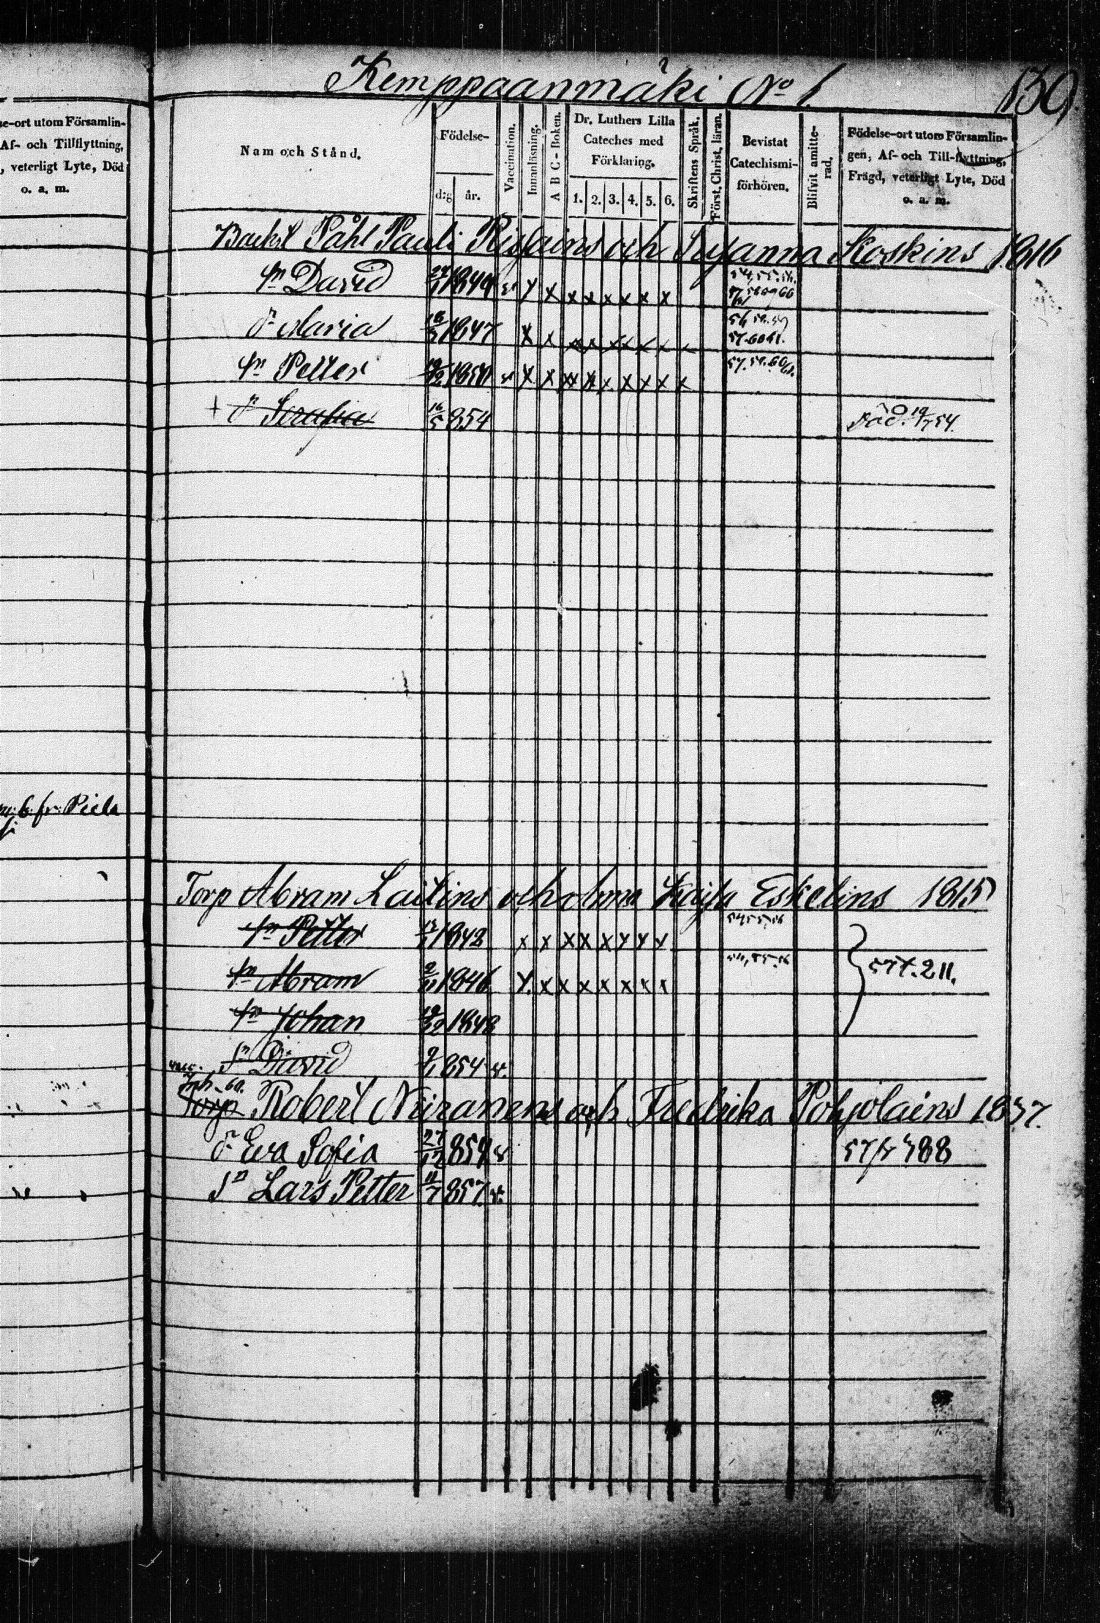 Kemppaanmäki No 1
139.
se-ort utom Församlin-
Af- och Tillflyttning,
, veterligt Lyte, Död
o. a. m.
Nam och Stånd.
Födelse-
dag
år.
Vaccination.
Innanläsning.
A B C - Boken.
Dr. Luthers Lilla
Cateches med
Förklaring.
1. 2. 3. 4. 5. 6.
Skriftens Språk.
Först. Christ. läran.
Bevistat
Catechismi-
förhören.
Blifvit amitte-
rad.
Födelse-ort utom Församlin-
gen, Af- och Till-flyttning,
Frägd, veterligt Lyte, Död
o. a. m.
Påhl Pauli och Susanna Koskins 1816
Sn David 1844 v x x x x x x x x
Dr Maria 1847 x x x x x x x x
Sn Petter 1850 v x x x x x x x x x
+ Dr Serafia 16/5 854 död. 19/7 54.
6 fr: Piela
Torp Abram Laitins och Kaisa Eskelins 1815
Sn Petter 1842 x x x x x x x x 54,55,56
Sn Abram 1846 x x x x x x x x 54,55,56
57 f. 211.
Sn Johan 1848
Sn David 9/1 854 v.
60.
Torp Robert och Fredrika Pohjolains 1837.
Dr Eva Sofia 27/12 854 v
Sn Lars Petter 857. v.